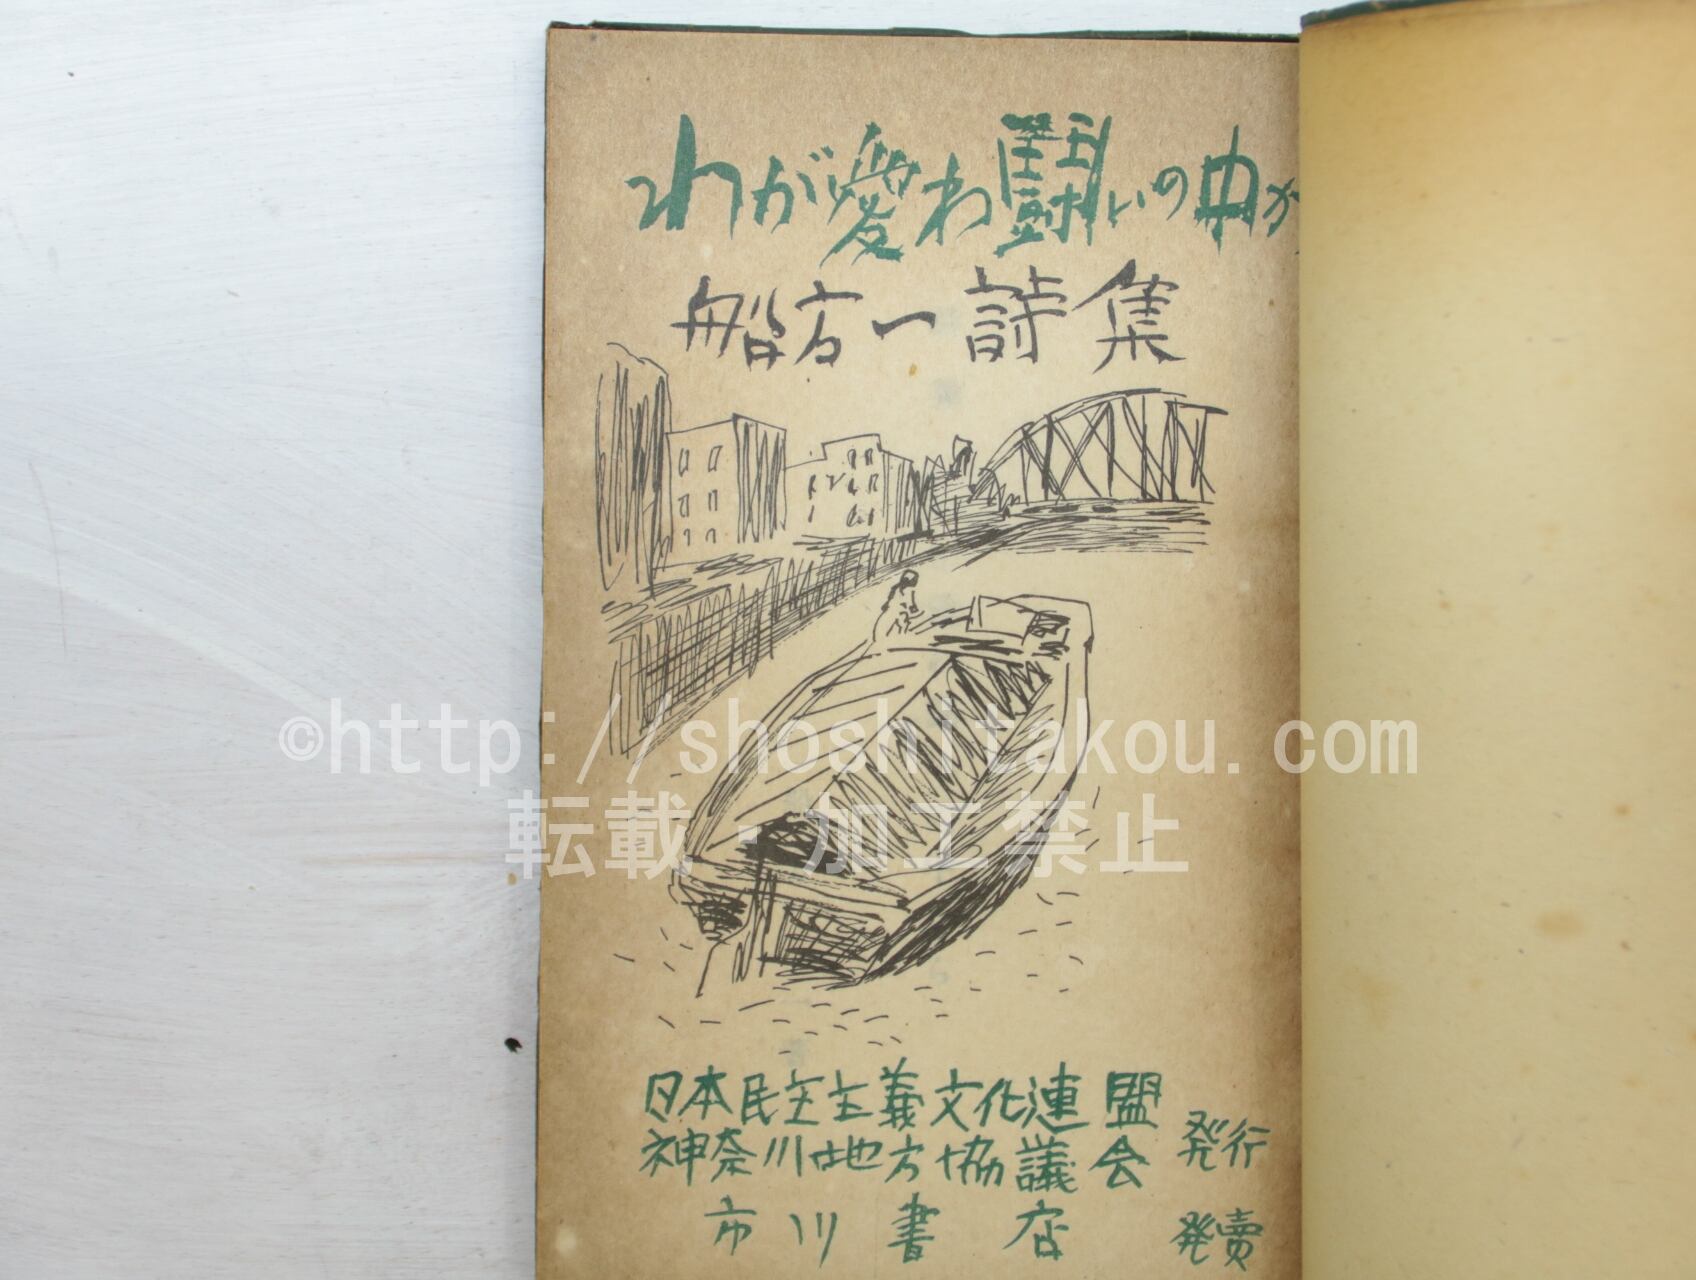 わが愛わ闘いの中か
船方一詩集
©http://shoshitakou.com
転載・加工禁止
日本民主主義文化連盟
神奈川地方協議会 発行
市川書店 発賣